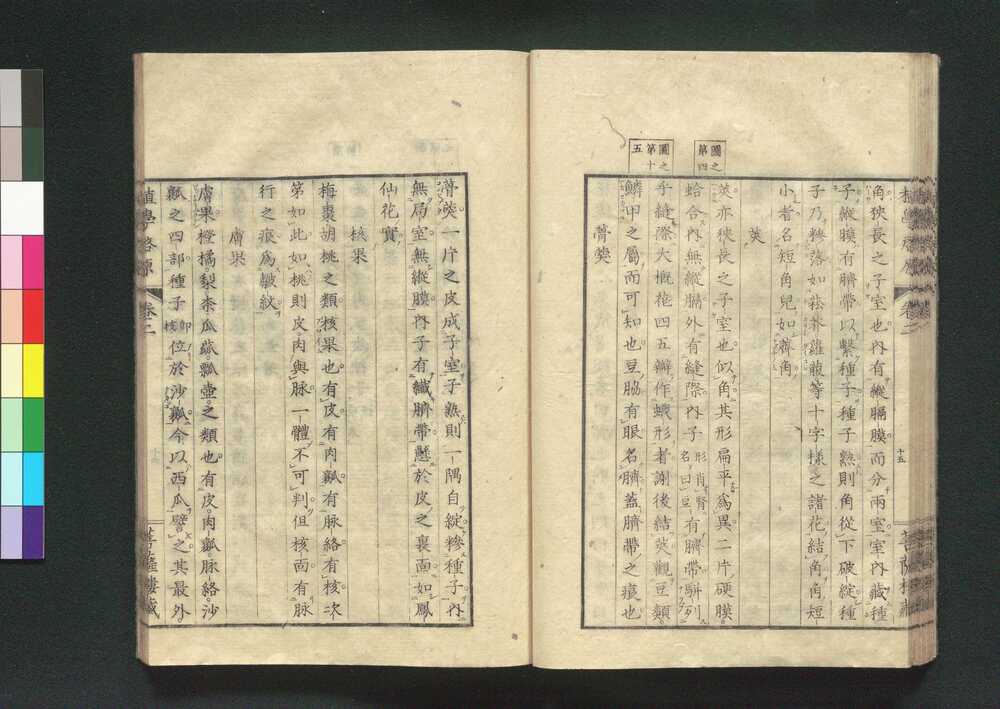 角狹長之子室也內有縱膈膜而分兩室室內藏種
子縱膜有臍帶以繫種子種子熟則角從下破綻種
子乃糝落如菘芥蘿菔等十字樣之諸花結角角短
小者名短角兒如薺角
莢
圖之第四
莢亦狹長之子室也似角其形扁平爲異二片硬膜
蛤合內無縱膈外有縫際內子形肖腎名曰豆有臍帶騈列
圖之第十五
于縫際大概花四五瓣作蛾形者謝後結莢觀豆類
鱗甲之屬而可知也豆脇有眼名臍蓋臍帶之痕也
菁莢
十五
菁莢一片之皮成子室子熟則一隅自綻糝種子內
無局室無縱膜內子有纖臍帶懸於皮之裏面如鳳
仙花實
核果
梅棗胡桃之類核果也有皮有肉瓤有脉絡有核次
第如此如桃則皮肉與脉一體不可判但核面有脉
行之痕爲皺紋
膚果
膚果橙橘梨柰瓜蓏瓢壺之類也有皮肉瓤脉絡沙
瓤之四部種子卽核位於沙瓤今以西瓜譬之其最外
植學啓原
卷二
菩薩樓藏